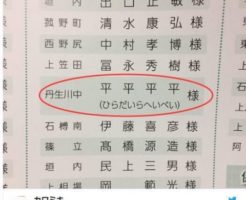 出口正敏様
菰野町 清水康弘様
西野尻 中村孝博様
上笠田 冨永秀樹様
丹生川中 平平平平様
(ひらだいらへいべい)
石榑南 伊藤喜彦様
篠立 髙橋源造様
垣内 民上三男様
上相場 岡 範光様